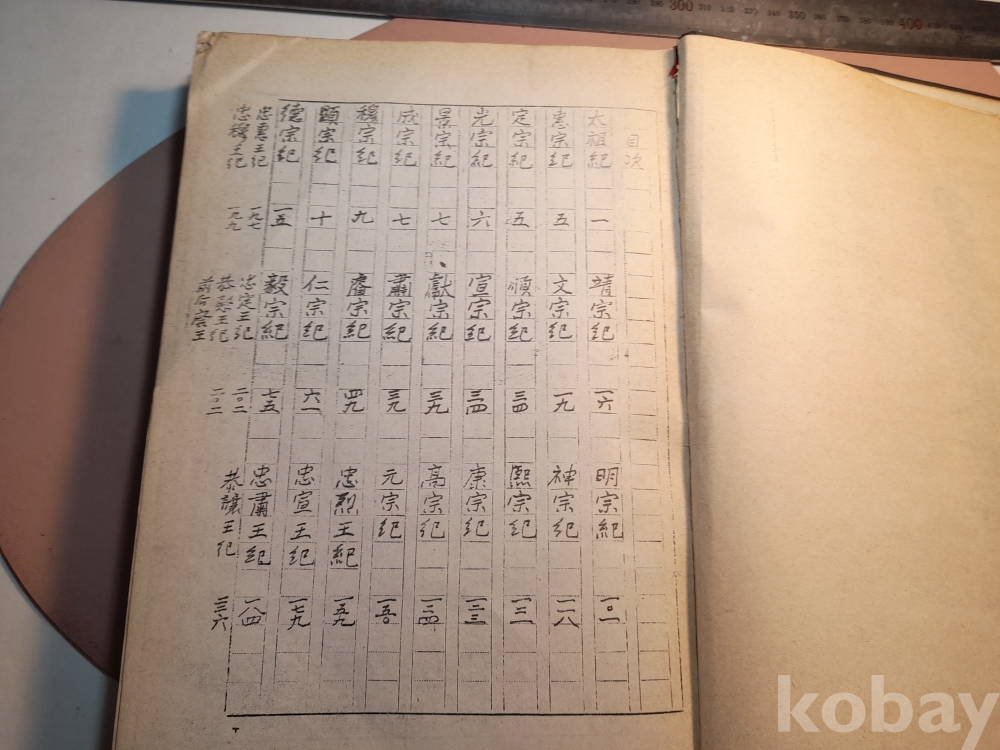 目次
太祖紀 一
惠宗紀 五
定宗紀 五
光宗紀 六
景宗紀 七
成宗紀 七
穆宗紀 九
顯宗紀 十
德宗紀 一五
靖宗紀 一六
文宗紀 一九
順宗紀 三四
宣宗紀 三四
獻宗紀 三九
肅宗紀 三九
睿宗紀 四九
仁宗紀 六一
毅宗紀 七五
明宗紀 一〇一
神宗紀 一一八
熙宗紀 一二一
康宗紀 一二三
高宗紀 一二四
元宗紀 一五〇
忠烈王紀 一五九
忠宣王紀 一七九
忠肅王紀 一八四
忠惠王紀 一九七
忠穆王紀 一九九
忠定王紀 二〇一
恭愍王紀 二〇二
前后廢王
恭讓王紀 二三六
300
350
400
kobay